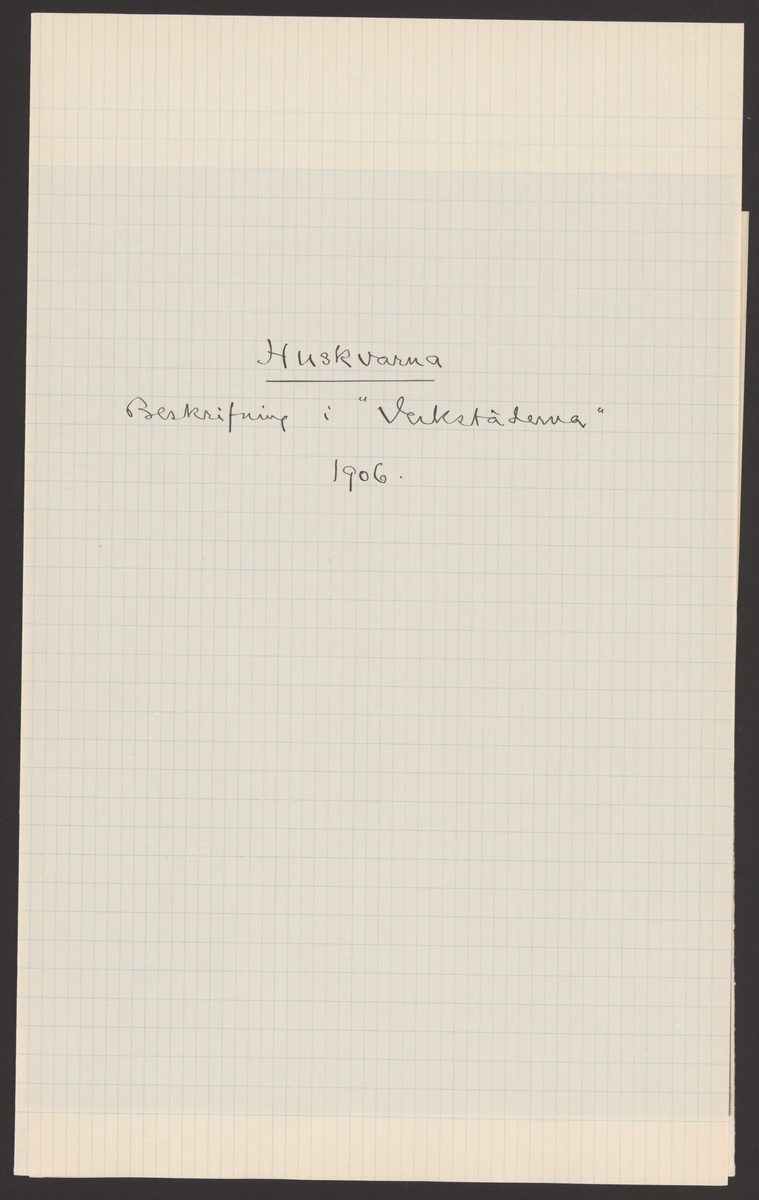 Huskvarna
Beskrifning i "Verkstäderna"
1906.